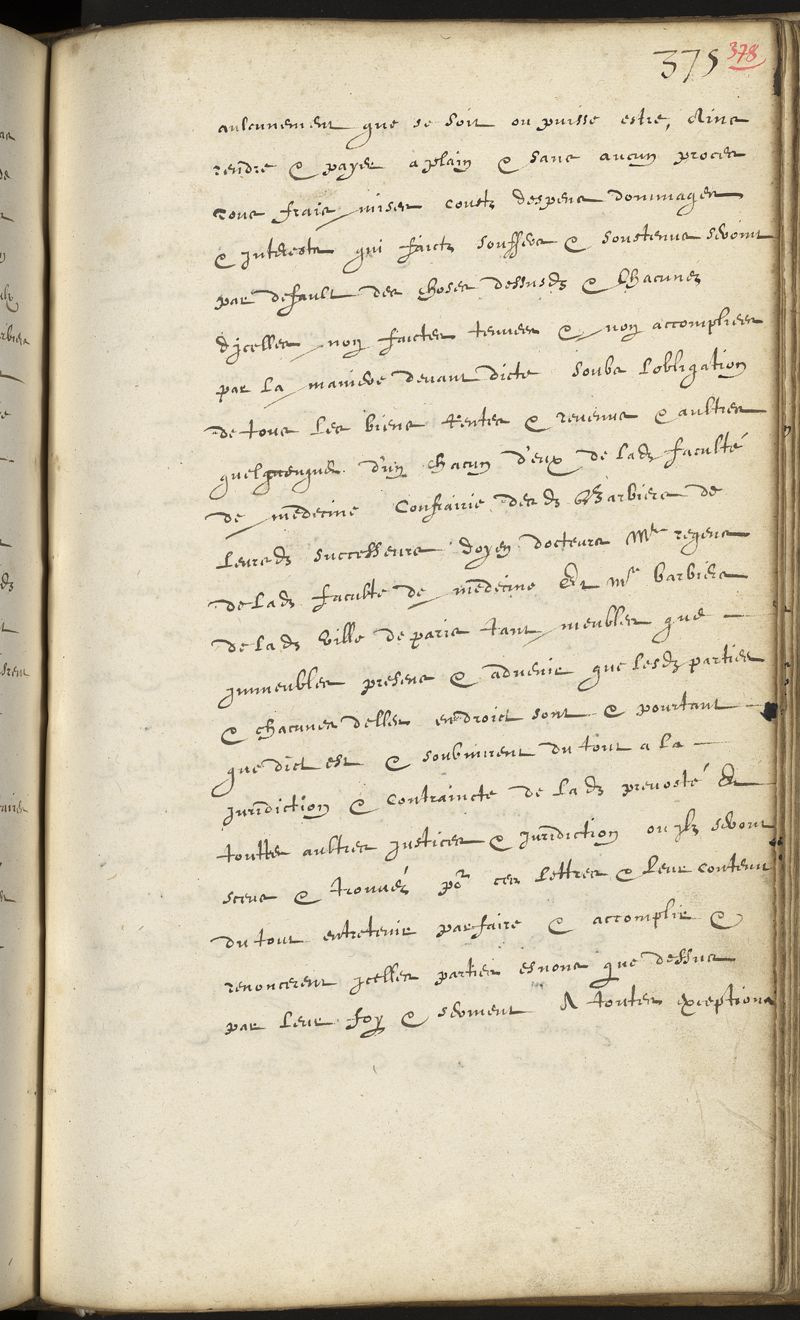 375 378
aulcunement que se soit ou puisse estre, Ains
rendre & payer a plain & sans aucun proces
tous frais mises coustz despens dommages
& Interests qui faictz soufferz & soustenus seroint
par default des choses dessusdz & Chacunes
d'jcelles non faictes tenues & non accomplies
par la maniere devant dicte soubs l'obligation
de tous les biens rentes & revenus & aultres
quelquonques d'un chacun d'eux de ladz faculté
de medecine Confrairie desdz Barbiers de
leursdz successeurs doyen docteurs Mes regens
de ladz faculte de medecine Et Me barbiers
de ladz ville de paris tant meubles que
jmmeubles presens & advenir que lesdz parties
& chacunes delles endroict sont & pourtant
que dict est & soubmirent du tout a la
juridiction & Contraincte de ladz prevosté Et
touttes aultres justices & juridiction ou jlz seront
sceus & trouvéz por ces lettres & leur contenu
du tout entretenir parfaire & accomplir &
renoncerent jcelles parties esnons que dessus
par leur foy & serment A toutes exceptions